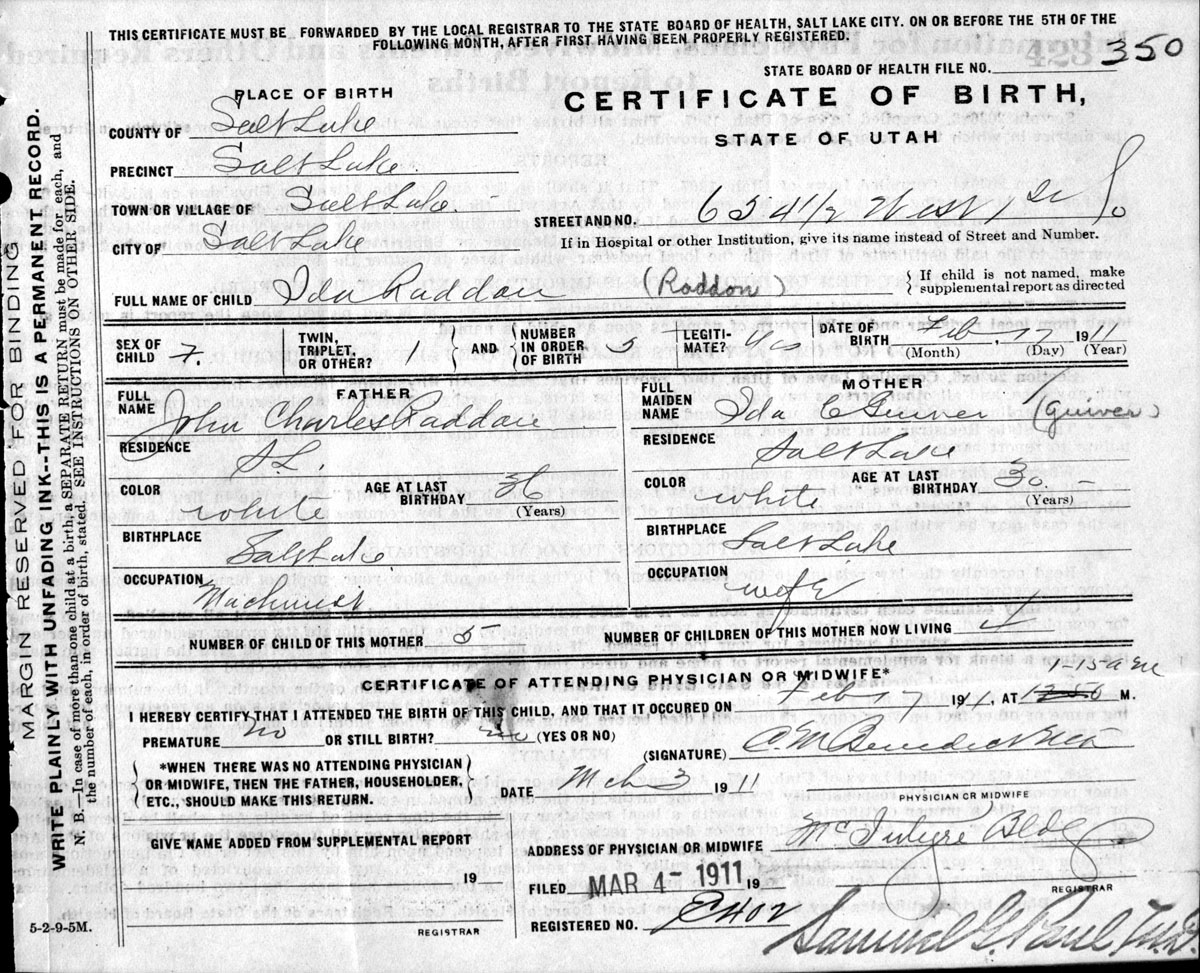 THIS CERTIFICATE MUST BE FORWARDED BY THE LOCAL REGISTRAR TO THE STATE BOARD OF HEALTH, SALT LAKE CITY. ON OR BEFORE THE 5TH OF THE
FOLLOWING MONTH, AFTER FIRST HAVING BEEN PROPERLY REGISTERED.
STATE BOARD OF HEALTH FILE NO. 350
PLACE OF BIRTH
CERTIFICATE OF BIRTH,
STATE OF UTAH
COUNTY OF Salt Lake
PRECINCT Salt Lake
TOWN OR VILLAGE OF Salt Lake
CITY OF Salt Lake
STREET AND NO. 634 1/2 West 1st So
If in Hospital or other Institution, give its name instead of Street and Number.
FULL NAME OF CHILD Ida Raddon (Raddon) { If child is not named, make
supplemental report as directed
SEX OF CHILD F. TWIN, TRIPLET, OR OTHER? 1 } AND { NUMBER IN ORDER OF BIRTH 5 LEGITIMATE? Yes DATE OF BIRTH Feb, 17, 1911
(Month) (Day) (Year)
FATHER
FULL NAME John Charles Raddon
RESIDENCE S.L.
COLOR white AGE AT LAST BIRTHDAY 36 (Years)
BIRTHPLACE Salt Lake
OCCUPATION Machinist
MOTHER
FULL MAIDEN NAME Ida C (Guiver)
RESIDENCE Salt Lake
COLOR white AGE AT LAST BIRTHDAY 30.- (Years)
BIRTHPLACE Salt Lake
OCCUPATION wife
NUMBER OF CHILD OF THIS MOTHER 5 NUMBER OF CHILDREN OF THIS MOTHER NOW LIVING
CERTIFICATE OF ATTENDING PHYSICIAN OR MIDWIFE*
I HEREBY CERTIFY THAT I ATTENDED THE BIRTH OF THIS CHILD, AND THAT IT OCCURED ON Feb 17 1911, AT M.
PREMATURE no OR STILL BIRTH? no (YES OR NO)
(SIGNATURE) C.M. Benedict
PHYSICIAN OR MIDWIFE
*WHEN THERE WAS NO ATTENDING PHYSICIAN
OR MIDWIFE, THEN THE FATHER, HOUSEHOLDER,
ETC., SHOULD MAKE THIS RETURN.
DATE Mch 3 1911
GIVE NAME ADDED FROM SUPPLEMENTAL REPORT
19
REGISTRAR
ADDRESS OF PHYSICIAN OR MIDWIFE McIntyre Bldg
FILED MAR 4- 1911 19
REGISTRAR
REGISTERED NO.
Samuel G. Paul
5-2-9-5M.
MARGIN RESERVED FOR BINDING
WRITE PLAINLY WITH UNFADING INK--THIS IS A PERMANENT RECORD.
N. B.—In case of more than one child at a birth, a SEPARATE RETURN must be made for each, and
the number of each, in order of birth, stated. SEE INSTRUCTIONS ON OTHER SIDE.